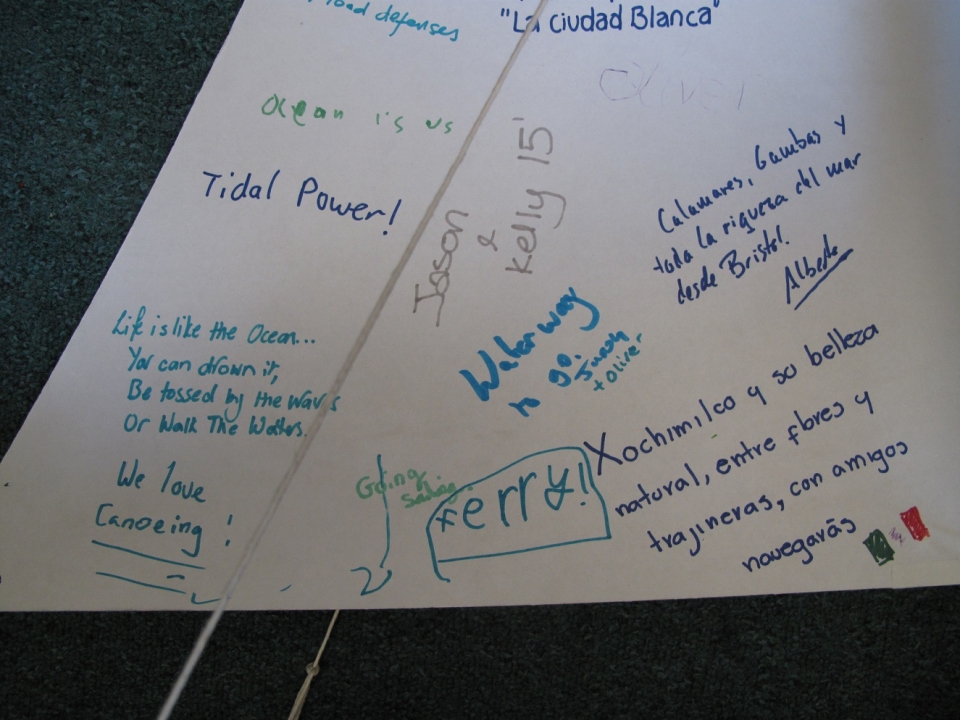 defenses
"La ciudad Blanca"
Oliver
Ocean is us
Tidal Power!
Jason
&
Kelly 15
Calamares, Gambas y
toda la riqueza del mar
desde Bristol.
Alberto
Life is like the Ocean...
You can drown it,
Be tossed by the waves
Or Walk The Waters.
Waterway
to go.
+ Oliver
We love
Canoeing!
Going
sailing
ferry!
Xochimilco y su belleza
natural, entre flores y
trajineras, con amigos
navegarás